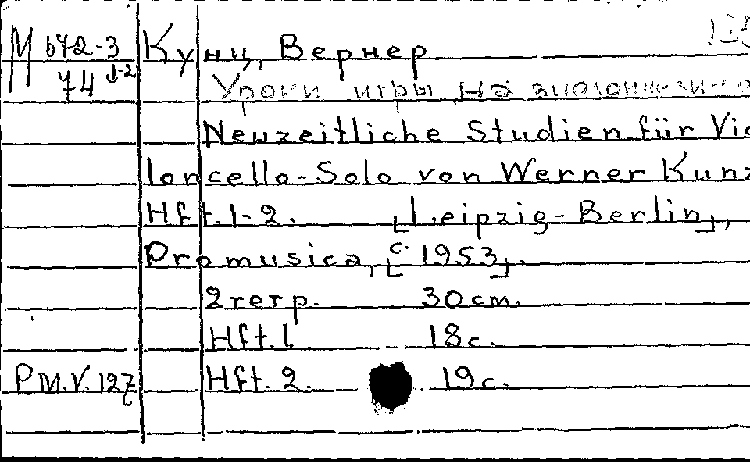 М 672-3 Кунц, Вернер
74 1-2 Уроки игры на виолончели
Neuzeitliche Studien für Vio
loncello-Solo von Werner Kunz
Hft. 1-2. [Leipzig-Berlin],
Pro musica, [c. 1953].
2 тетр. 30 cm.
Hft. 1 18 c.
P.M.V. 127 Hft. 2. 19 c.